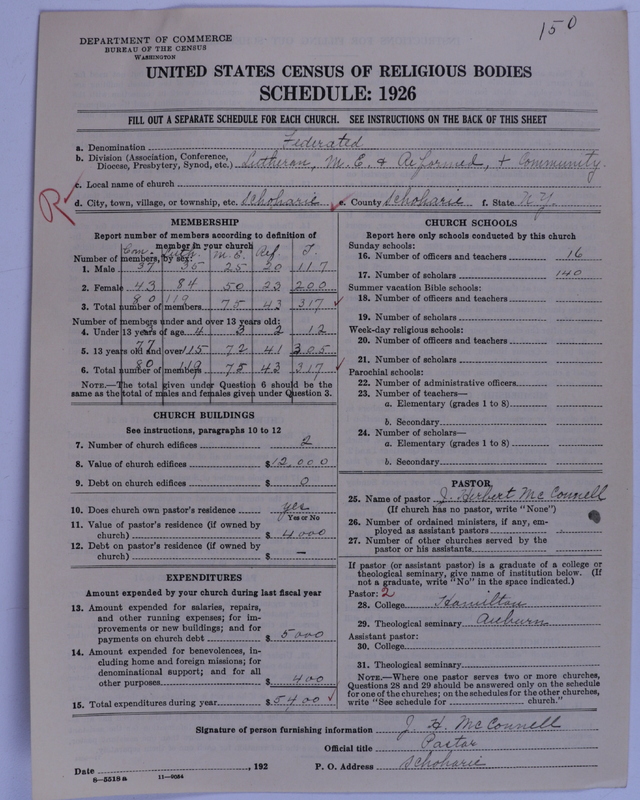 150
DEPARTMENT OF COMMERCE
BUREAU OF THE CENSUS
WASHINGTON
UNITED STATES CENSUS OF RELIGIOUS BODIES
SCHEDULE: 1926
FILL OUT A SEPARATE SCHEDULE FOR EACH CHURCH. SEE INSTRUCTIONS ON THE BACK OF THIS SHEET
a. Denomination Federated
b. Division (Association, Conference, Diocese, Presbytery, Synod, etc.) Lutheran, M. E. & Reformed, + Community.
c. Local name of church
R
d. City, town, village, or township, etc. Schoharie e. County Schoharie f. State N.Y.
MEMBERSHIP
Report number of members according to definition of member in your church
Com. Luth. M.E. Ref. T.
Number of members, by sex:
1. Male 37 35 25 20 117
2. Female 43 84 50 23 200
3. Total number of members 80 119 75 43 317
Number of members under and over 13 years old:
4. Under 13 years of age 3 4 3 2 12
5. 13 years old and over 77 115 72 41 305
6. Total number of members 80 119 75 43 317
NOTE.—The total given under Question 6 should be the
same as the total of males and females given under Question 3.
CHURCH BUILDINGS
See instructions, paragraphs 10 to 12
7. Number of church edifices 2
8. Value of church edifices $12,000
9. Debt on church edifices $ 0
10. Does church own pastor's residence? yes
Yes or No
11. Value of pastor's residence (if owned by
church) $ 4000
12. Debt on pastor's residence (if owned by
church) $ —
EXPENDITURES
Amount expended by your church during last fiscal year
13. Amount expended for salaries, repairs,
and other running expenses; for im-
provements or new buildings; and for
payments on church debt $ 5000
14. Amount expended for benevolences, in-
cluding home and foreign missions; for
denominational support; and for all
other purposes $ 400
15. Total expenditures during year $ 5400
CHURCH SCHOOLS
Report here only schools conducted by this church
Sunday schools:
16. Number of officers and teachers 16
17. Number of scholars 140
Summer vacation Bible schools:
18. Number of officers and teachers
19. Number of scholars
Week-day religious schools:
20. Number of officers and teachers
21. Number of scholars
Parochial schools:
22. Number of administrative officers
23. Number of teachers—
a. Elementary (grades 1 to 8)
b. Secondary
24. Number of scholars—
a. Elementary (grades 1 to 8)
b. Secondary
PASTOR
25. Name of pastor J. Herbert McConnell
(If church has no pastor, write "None")
26. Number of ordained ministers, if any, em-
ployed as assistant pastors
27. Number of other churches served by the
pastor or his assistants
If pastor (or assistant pastor) is a graduate of a college or
theological seminary, give name of institution below. (If
not a graduate, write "No" in the space indicated.)
Pastor: 2
28. College Hamilton
29. Theological seminary Auburn
Assistant pastor:
30. College
31. Theological seminary
NOTE.—Where one pastor serves two or more churches,
Questions 28 and 29 should be answered only on the schedule
for one of the churches; on the schedules for the other churches,
write "See schedule for church."
Signature of person furnishing information J. H. McConnell
Official title Pastor
Date , 192 P. O. Address Schoharie
8—5518 a 11—9034